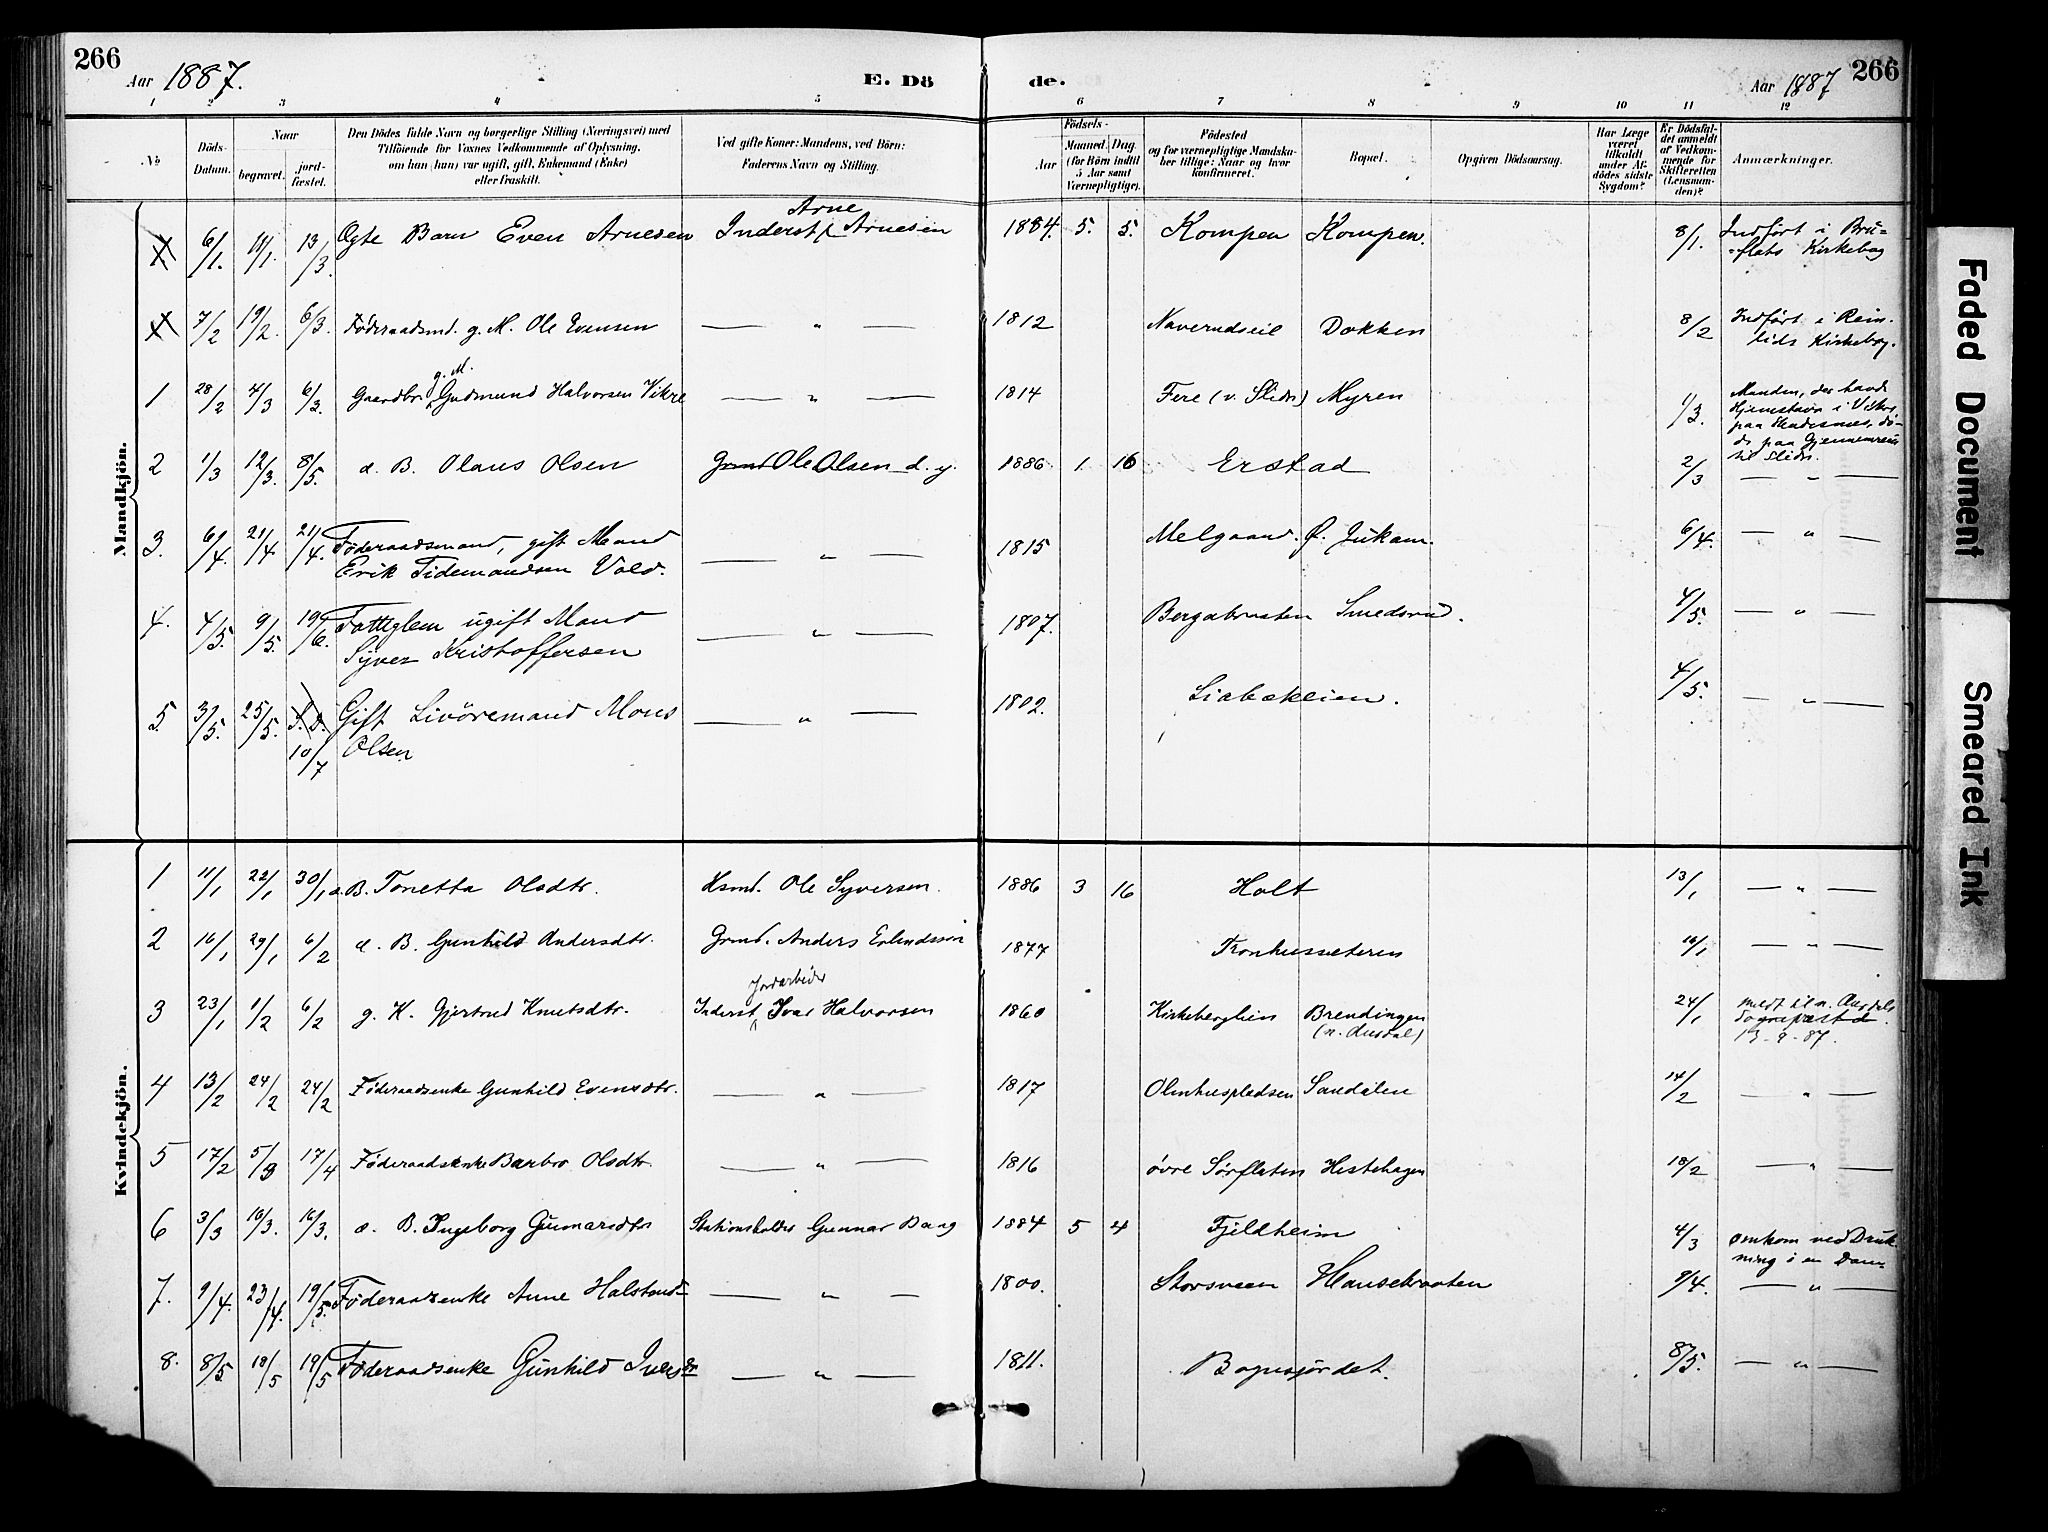 266
Aar 1887.
E. Dö
de.
Aar 1887
266
1 2 3 4 5 6 7 8 9 10 11 12
No
Döds-Datum.
Naar
begravet.
jord-fæstet.
Den Dödes fulde Navn og borgerlige Stilling (Næringsvei) med
Tilföiende for Voxnes Vedkommende af Oplysning,
om han (hun) var ugift, gift, Enkemand (Enke)
eller fraskilt.
Ved gifte Koner: Mandens, ved Börn:
Faderens Navn og Stilling.
Födsels-
Aar
Maaned. Dag.
(for Börn indtil
5 Aar samt
Værnepligtige).
Födested
og for værnepligtige Mandska-
ber tillige: Naar og hvor
konfirmeret.
Bopæl.
Opgiven Dödsaarsag.
Har Læge
været
tilkaldt
under Af-
dödes sidste
Sygdom?
Er Dödsfal-
det anmeldt
af Vedkom-
mende for
Skifteretten
(Lensman-
den)?
Anmærkninger.
Mandkjön.
6/1. 11/1. 13/3. Ægte Barn Even Arnesen Inderst Arne Arnesen 1884. 5. 5. Kompen Kompen. 8/1. Indført i Bru-
flats Kirkebog
7/2 19/2. 6/3. Föderaadsmd. g. M. Ole Evensen — " — 1812 Naverudseie Dokken 8/2 Indført i Rein-
lids Kirkebog.
1 28/2 4/3 6/3. Gaardbr. g. M. Gudmund Halvorsen Vikre — " — 1814 Fere (v. Slidre) Myren 1/3. Manden, der havde
Hjemstavn i
paa
de paa Gjennemreise
til Slidre.
2 1/3 12/3. 8/5. æ. B. Olaus Olsen Grmd Ole Olsen d. y. 1886 1 16 Erstad 2/3 — " —
3. 6/4. 21/4. 21/4. Föderaadsmand, gift Mand
Erik Tidemandsen Vold. — " — 1815 Melgaard. Ø. Jukam. 6/4. — " —
4. 4/5. 9/5. 19/6. Fattiglem ugift Mand
Syver Kristoffersen — " — 1807. Bergabrusten Smedsrud. 4/5. — " —
5. 3/5. 25/5. 10/7 Gift Livöremand Mons
Olsen — " — 1802. Liabakeien. 4/5. — " —
Kvindekjön.
1 11/1 22/1 30/1 æ. B. Tonetta Olsdtr. Hsmd. Ole Syversen. 1886 3 16 Holt 13/1 — " —
2 16/1 29/1 6/2 æ. B. Gunhild Andersdtr. Grmd. Anders Erlandssøn 1877 Tronhussæteren 16/1 — " —
3 23/1 1/2 6/2 g. K. Gjertrud Knutsdtr. Inderst Jordarbeider Ivar Halvorsen 1860 Kirkeberglien Brendingen
(n. Ausdal) 24/1 meldt til n. Ausdals
Sognepræst d.
13-9-87.
4 13/2 24/2 24/2 Föderaadsenke Gunhild Evensdtr. — " — 1817 Olmhuspladsen Sandalen 14/2 — " —
5 17/2 5/3 17/4 Föderaadsenke Barbro Olsdtr. — " — 1816 övre Sørflaten Hestehagen 18/2 — " —
6 3/3 16/3. 16/3. æ. B. Ingeborg Gunnarsdtr Stationsholder Gunnar Bang 1884 5 4 Fjeldheim 4/3 omkom ved Druk-
ning i en Dam
7. 9/4. 23/4. 19/5. Föderaadsenke Anne Halstensd — " — 1800. Storsveen Hansebraaten 9/4. — " —
8. 8/5 18/5 19/5 Föderaadsenke Gunhild Iversdr — " — 1811. Bognsjordet. 8/5. — " —
Faded Document
Smeared Ink